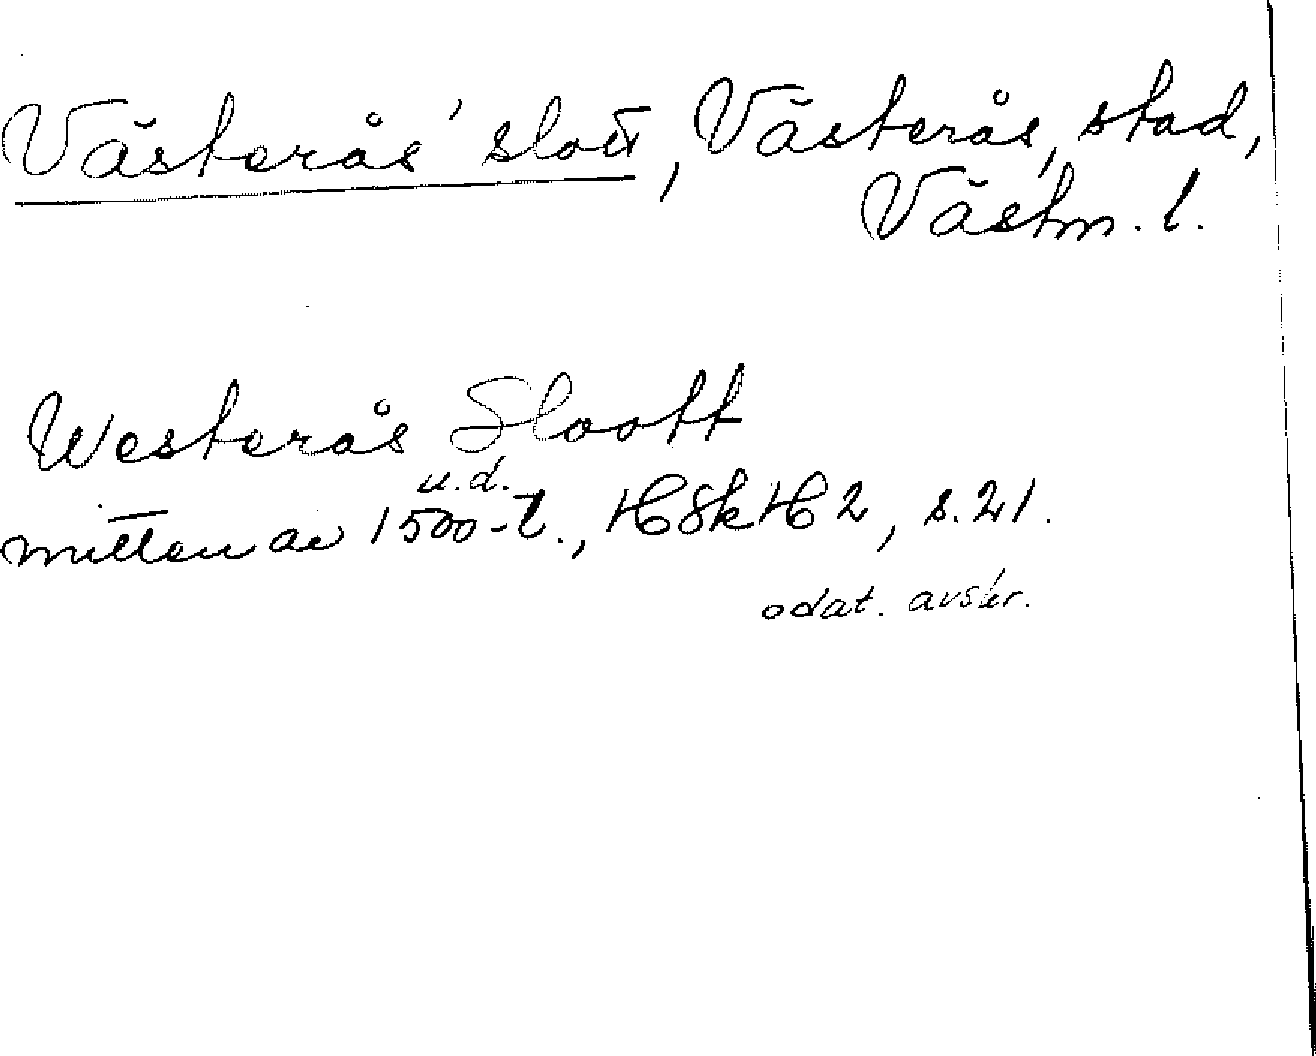 Västerås' slott, Västerås, stad,
Västm. l.
Westerås Slooth
u.d.
mitten av 1500-t., HSkH 2, s. 21.
odat. avskr.